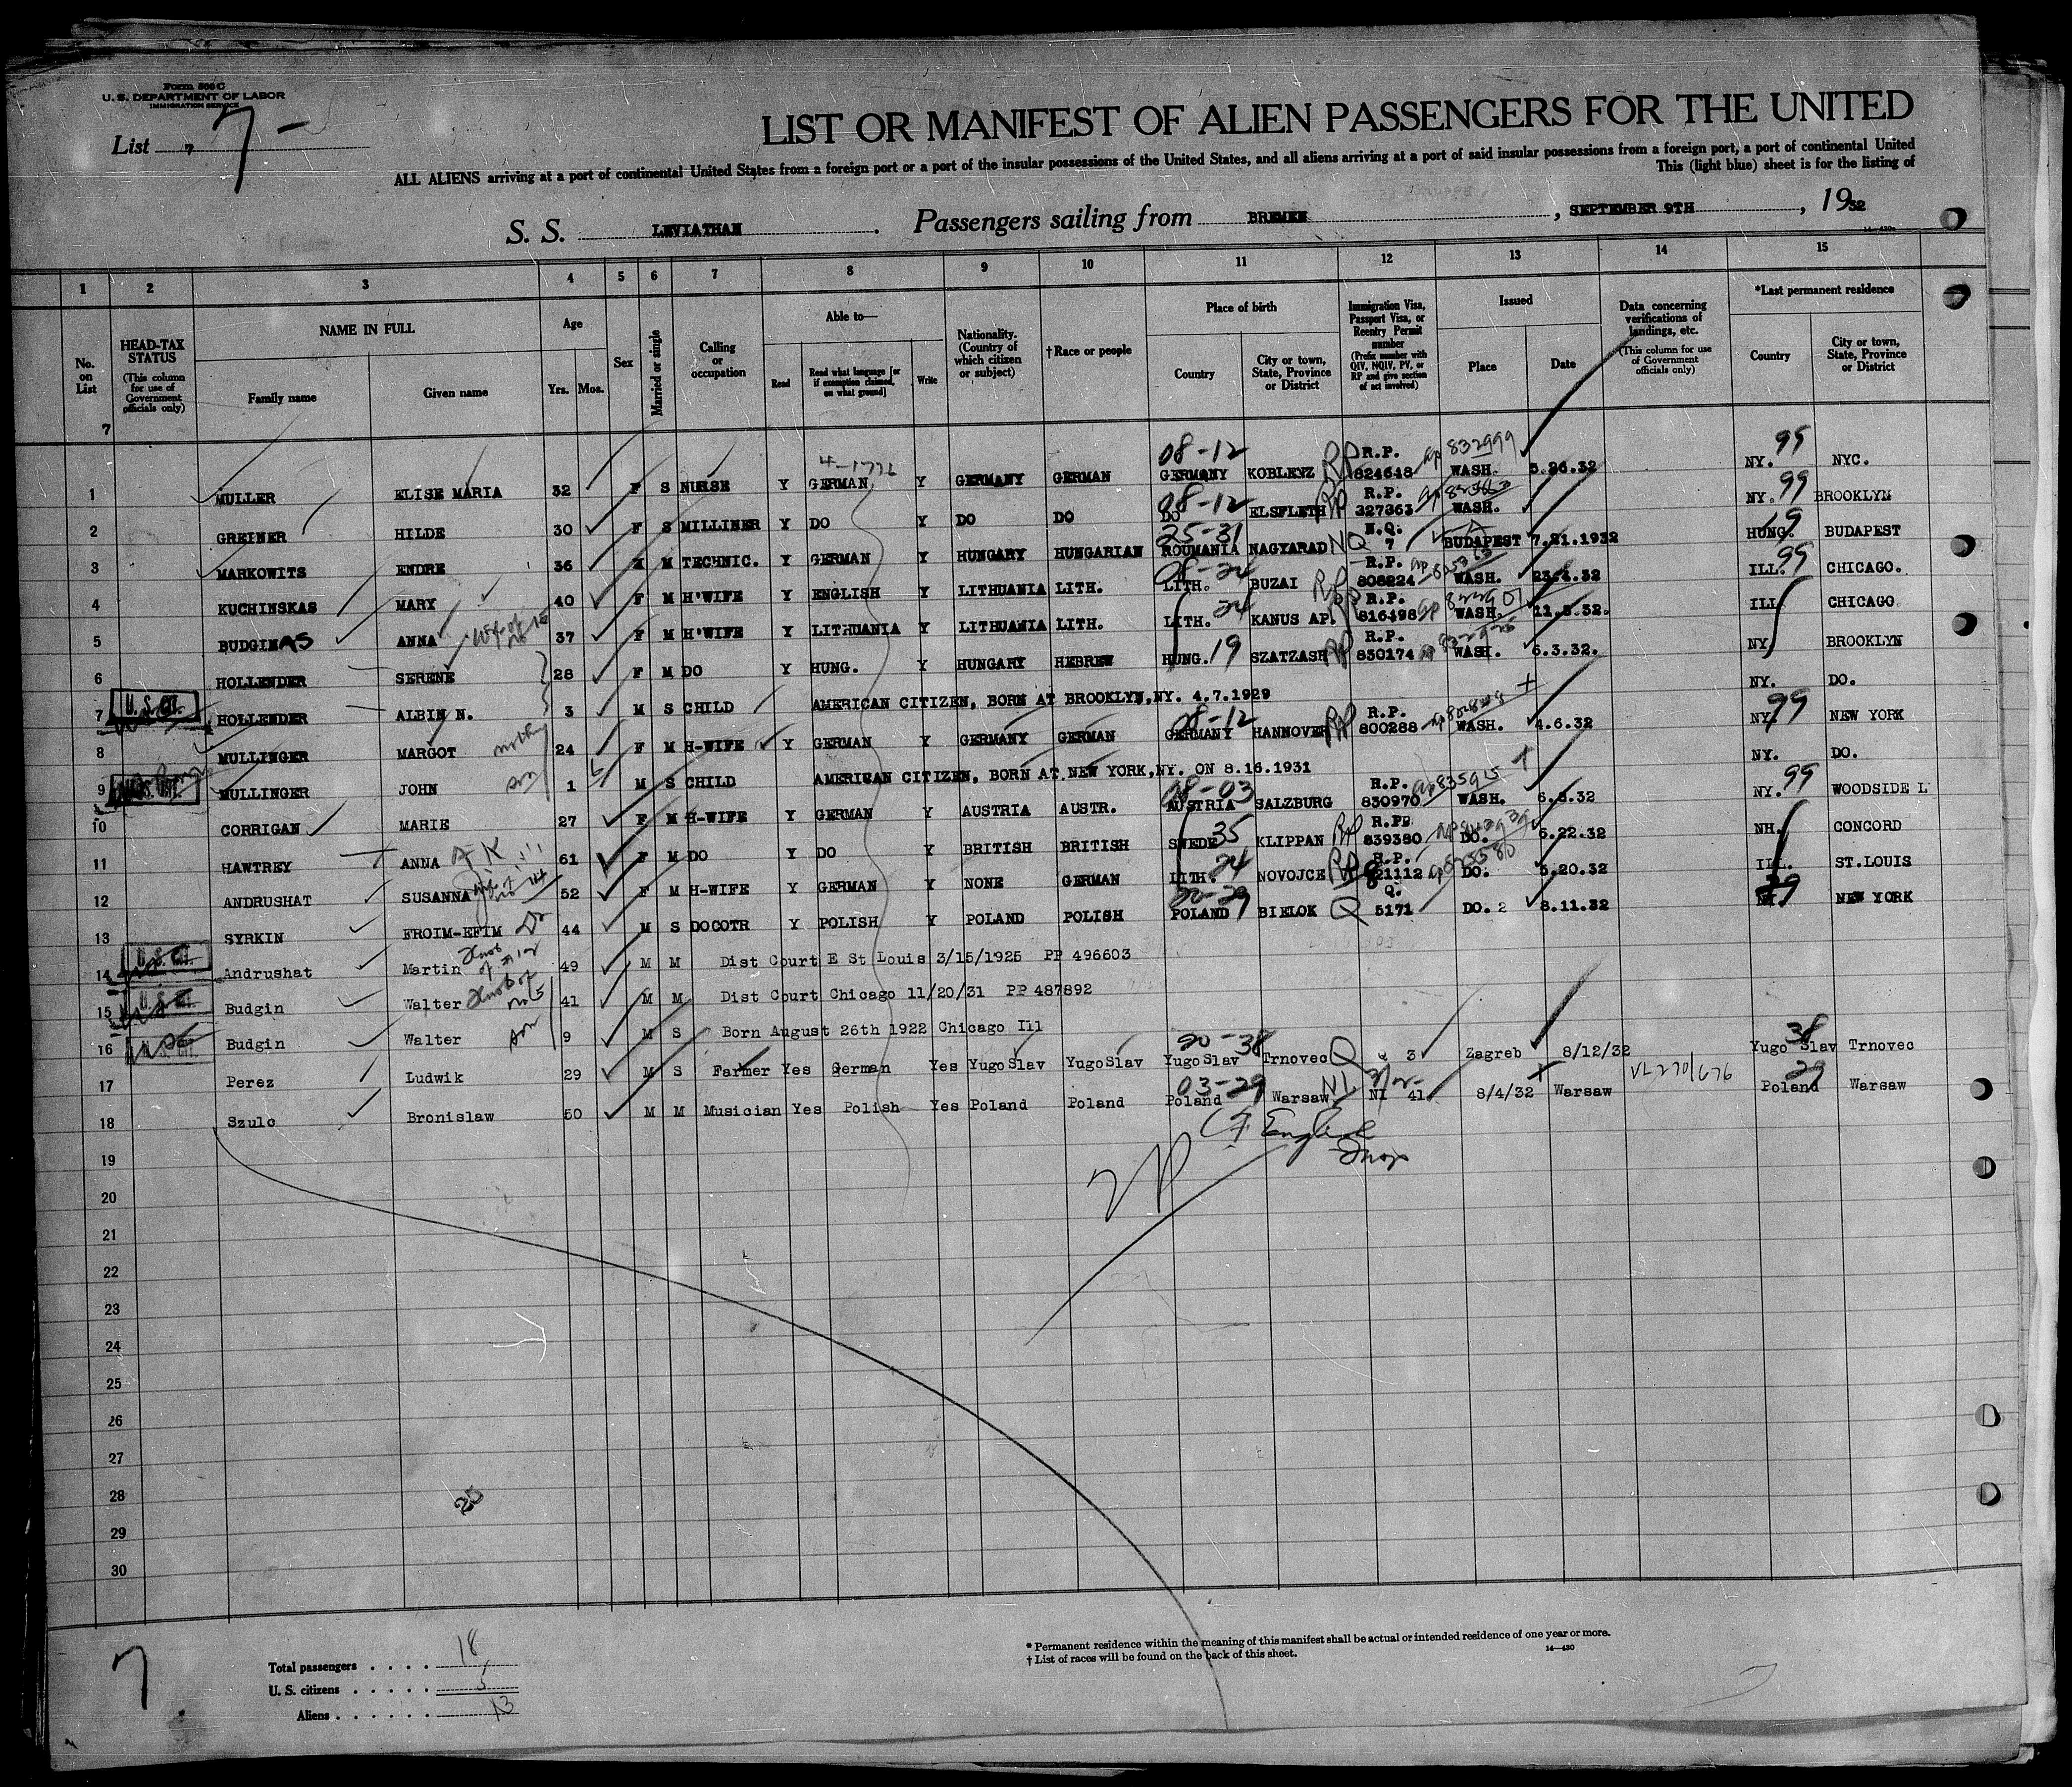 Form 500 C
U. S. DEPARTMENT OF LABOR
IMMIGRATION SERVICE
List 7 7 -
LIST OR MANIFEST OF ALIEN PASSENGERS FOR THE UNITED
ALL ALIENS arriving at a port of continental United States from a foreign port or a port of the insular possessions of the United States, and all aliens arriving at a port of said insular possessions from a foreign port, a port of continental United
This (light blue) sheet is for the listing of
S. S. LEVIATHAN . Passengers sailing from BREMEN , SEPTEMBER 9TH , 1932
1 2 3 4 5 6 7 8 9 10 11 12 13 14 15
No. on List
HEAD-TAX STATUS (This column for use of Government officials only)
NAME IN FULL Family name Given name
Age Yrs. Mos.
Sex
Married or single
Calling or occupation
Able to— Read Read what language [or if exemption claimed, on what ground] Write
Nationality. (Country of which citizen or subject)
†Race or people
Place of birth Country City or town, State, Province or District
Immigration Visa, Passport Visa, or Reentry Permit number (Prefix number with QIV, NQIV, PV, or RP and give section of act involved)
Issued Place Date
Data concerning verifications of landings, etc. (This column for use of Government officials only)
*Last permanent residence Country City or town, State, Province or District
7
1 MULLER ELISE MARIA 32 F S NURSE Y GERMAN Y GERMANY GERMAN 08-12 GERMANY KOBLENZ RP R.P. 824648 832999 WASH. 5.26.32 NY. 99 NYC.
2 GREINER HILDE 30 F S MILLINER Y DO Y DO DO 08-12 DO ELSFLETH RP R.P. 327363 WASH. NY. 99 BROOKLYN
3 MARKOWITS ENDRE 36 M M TECHNIC. Y GERMAN Y HUNGARY HUNGARIAN 25-31 ROUMANIA NAGYARAD NQ N.Q. 7 BUDAPEST 7.21.1932 HUNG. BUDAPEST
4 KUCHINSKAS MARY 40 F M H'WIFE Y ENGLISH Y LITHUANIA LITH. 08-24 LITH. BUZAI RP R.P. 808224 WASH. 23.4.32 ILL. 99 CHICAGO.
5 BUDGINAS ANNA 37 F M H'WIFE Y LITHUANIA Y LITHUANIA LITH. 24 LITH. KANUS AP. R.P. 816498 WASH. 11.5.32. ILL CHICAGO
6 HOLLENDER SERENE 28 F M DO Y HUNG. Y HUNGARY HEBREW HUNG. 19 SZATZASH RP R.P. 830174 WASH. 6.3.32. NY BROOKLYN
7 U. S. CIT. HOLLENDER ALBIN N. 3 M S CHILD AMERICAN CITIZEN, BORN AT BROOKLYN,NY. 4.7.1929 NY. DO.
8 MULLINGER MARGOT mother 24 F M H-WIFE Y GERMAN Y GERMANY GERMAN 08-12 GERMANY HANNOVER RP R.P. 800288 WASH. 4.6.32 NY. 99 NEW YORK
9 MULLINGER JOHN son 1 M S CHILD AMERICAN CITIZEN, BORN AT NEW YORK,NY. ON 8.16.1931 NY. DO.
10 CORRIGAN MARIE 27 F M H-WIFE Y GERMAN Y AUSTRIA AUSTR. 08-03 AUSTRIA SALZBURG R.P. 830970 835915 WASH. 6.8.32 NY. 99 WOODSIDE L
11 HAWTREY ANNA 61 F M DO Y DO Y BRITISH BRITISH SWEDE 35 KLIPPAN RP R.P. 839380 DO. 6.22.32 NH. CONCORD
12 ANDRUSHAT SUSANNA wife of no 14 52 F M H-WIFE Y GERMAN Y NONE GERMAN LITH. 24 NOVOJCE R.P. 821112 DO. 5.20.32 ILL. ST.LOUIS
13 SYRKIN FROIM-EFIM Dr 44 M S DOCOTR Y POLISH Y POLAND POLISH 20-29 POLAND BIELOK Q Q. 5171 DO. 2 8.11.32 29 NEW YORK
14 Andrushat Martin 49 M M Dist Court E St Louis 3/15/1925 PP 496603
15 Budgin Walter 41 M M Dist Court Chicago 11/20/31 PP 487892
16 Budgin Walter son 9 M S Born August 26th 1922 Chicago Ill
17 Perez Ludwik 29 M S Farmer Yes German Yes YugoSlav YugoSlav 20-38 YugoSlav Trnovec Q 3 Zagreb 8/12/32 38 Yugo Slav Trnovec
18 Szulc Bronislaw 50 M M Musician Yes Polish Yes Poland Poland 03-29 Poland Warsaw NI NI 41 8/4/32 Warsaw 29 Poland Warsaw
19
20
21
22
23
24
25
26
27
28
29
30
25
7
Total passengers . . . . 18
U. S. citizens . . . . . 5
Aliens . . . . . . 13
* Permanent residence within the meaning of this manifest shall be actual or intended residence of one year or more.
† List of races will be found on the back of this sheet.
14—430